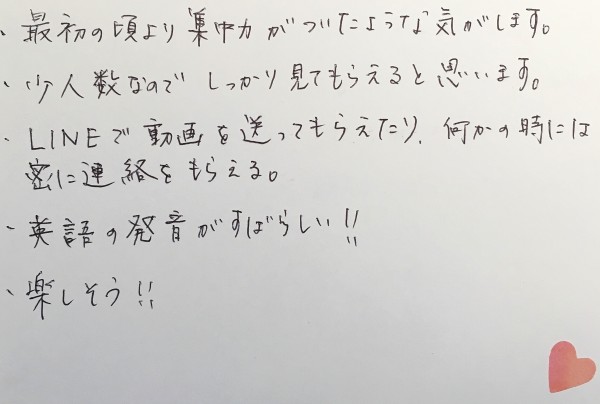 ・最初の頃より集中力がついたような気がします。
・少人数なので しっかり見てもらえると思います。
・LINEで動画を送ってもらえたり、何かの時には
密に連絡をもらえる。
・英語の発音がすばらしい!!
・楽しそう!!